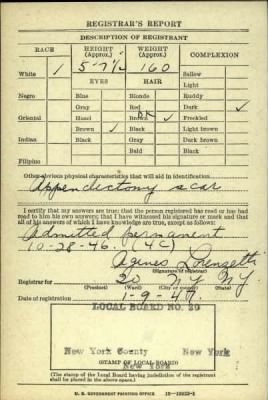 REGISTRAR'S REPORT
DESCRIPTION OF REGISTRANT
RACE HEIGHT (Approx.) WEIGHT (Approx.) COMPLEXION
White 1 5-7½ 160 Sallow
EYES HAIR Light
Negro Blue Blonde Ruddy
Gray Red Dark ✓
Oriental Hazel Brown ✓ Freckled
Brown ✓ Black Light brown
Indian Black Gray Dark brown
Bald Black
Filipino
Other obvious physical characteristics that will aid in identification
Appendectomy scar
I certify that my answers are true; that the person registered has read or has had
read to him his own answers; that I have witnessed his signature or mark and that
all of his answers of which I have knowledge are true, except as follows:
Admitted permanent
10-28-46. (4C)
Agnes L.
(Signature of registrar)
Registrar for 20 N.Y. N.Y.
(Precinct) (Ward) (City or county) (State)
Date of registration 1-9-47.
LOCAL BOARD NO. 20
New York County New York
(STAMP OF LOCAL BOARD)
New York
(The stamp of the Local Board having jurisdiction of the registrant
shall be placed in the above space.)
U. S. GOVERNMENT PRINTING OFFICE